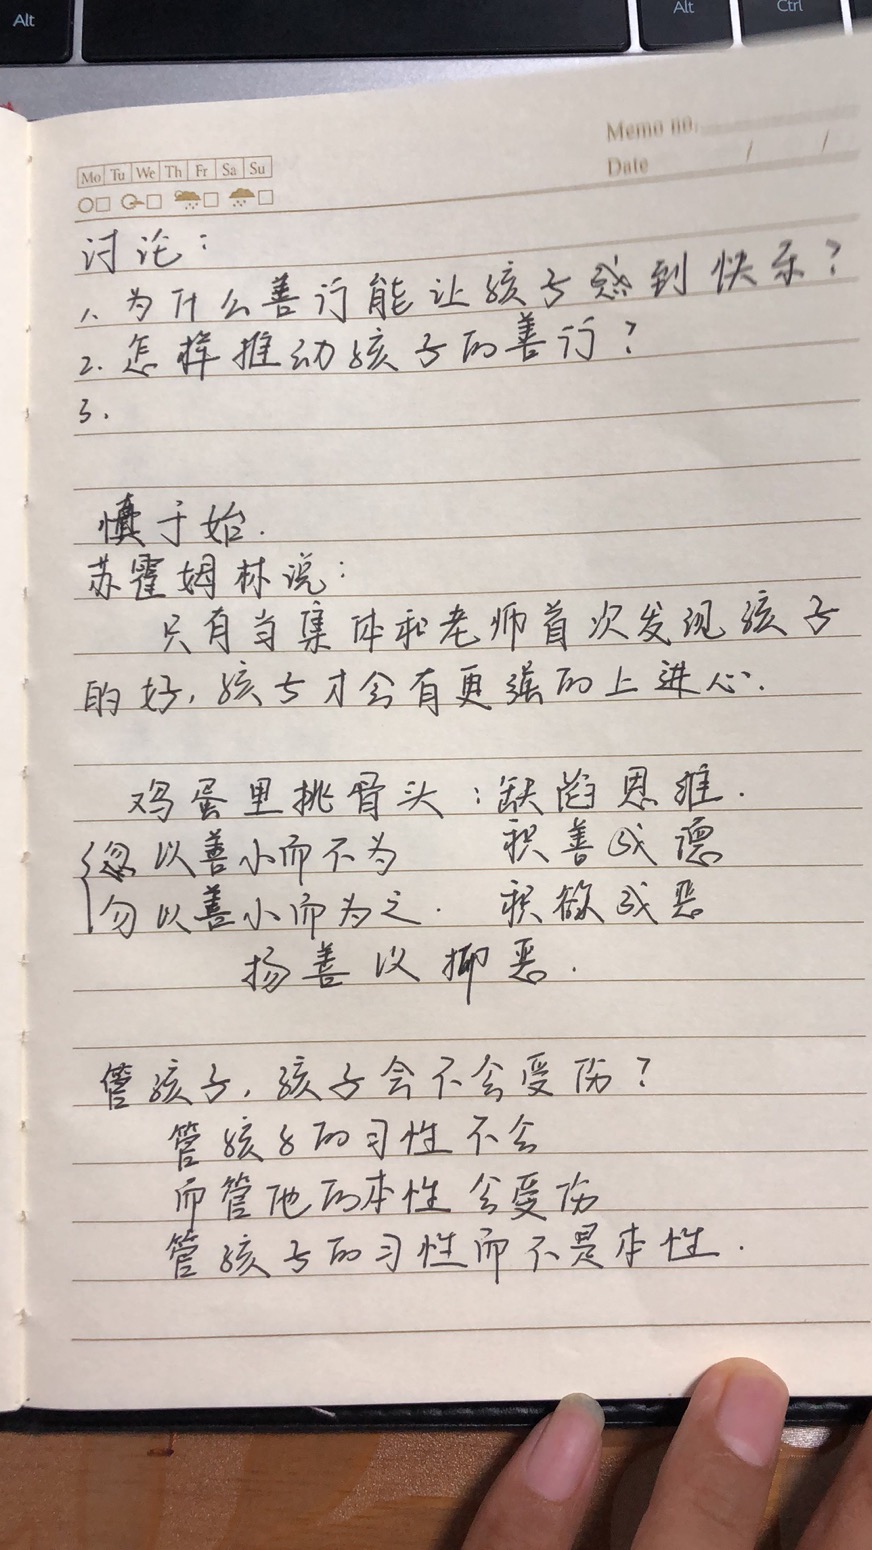 Alt
Alt
Ctrl
Memo no.
Date / /
Mo Tu We Th Fr Sa Su
讨论：
1. 为什么善行能让孩子感到快乐？
2. 怎样推动孩子的善行？
3.
慎于始.
苏霍姆林说：
只有当集体和老师首次发现孩子
的好，孩子才会有更强的上进心.
鸡蛋里挑骨头：缺陷思维.
忽以善小而不为 积善成德
勿以善小而为之. 积欲成恶
扬善以抑恶.
管孩子，孩子会不会受伤？
管孩子的习性不会
而管他的本性会受伤
管孩子的习性而不是本性.